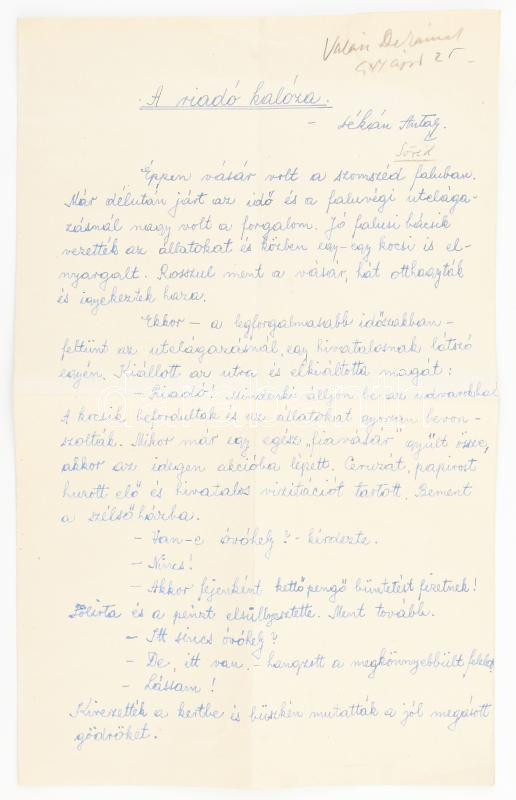 A riadó kalóza.
- Békán Antal.
Éppen vásár volt a szomszéd faluban.
Már délután járt az idő és a faluvégi utelága-
zásnál nagy volt a forgalom. Jó falusi bácsik
vezették az állatokat és közben egy-egy kocsi is el-
nyargalt. Rosszul ment a vásár, hát otthagyták
és igyekeztek haza.
Ekkor - a legforgalmasabb időszakban -
feltünt az utelágazásnál egy hivatalosnak látszó
egyén. Kiállott az utra és elkiáltotta magát:
- Riadó! Mindenki álljon be az udvarokba!
A kocsik befordultak és az állatokat gyorsan bevon-
szolták. Mikor már egy egész „kirakóvásár" gyült össze,
akkor az idegen akcióba lépett. Ceruzát, papirost
huzott elő és hivatalos vizitációt tartott. Bement
a szélső házba.
- Van-e óvóhely? - kérdezte.
- Nincs!
- Akkor fejenként kettőpengő büntetést fizetnek!
Fölirta és a pénzt elsüllyesztette. Ment tovább.
- Itt sincs óvóhely?
- De, itt van. - hangzott a megkönnyebbült felelet
- Lássam!
Kivezették a kertbe és büszkén mutatták a jól megásott
gödröket.